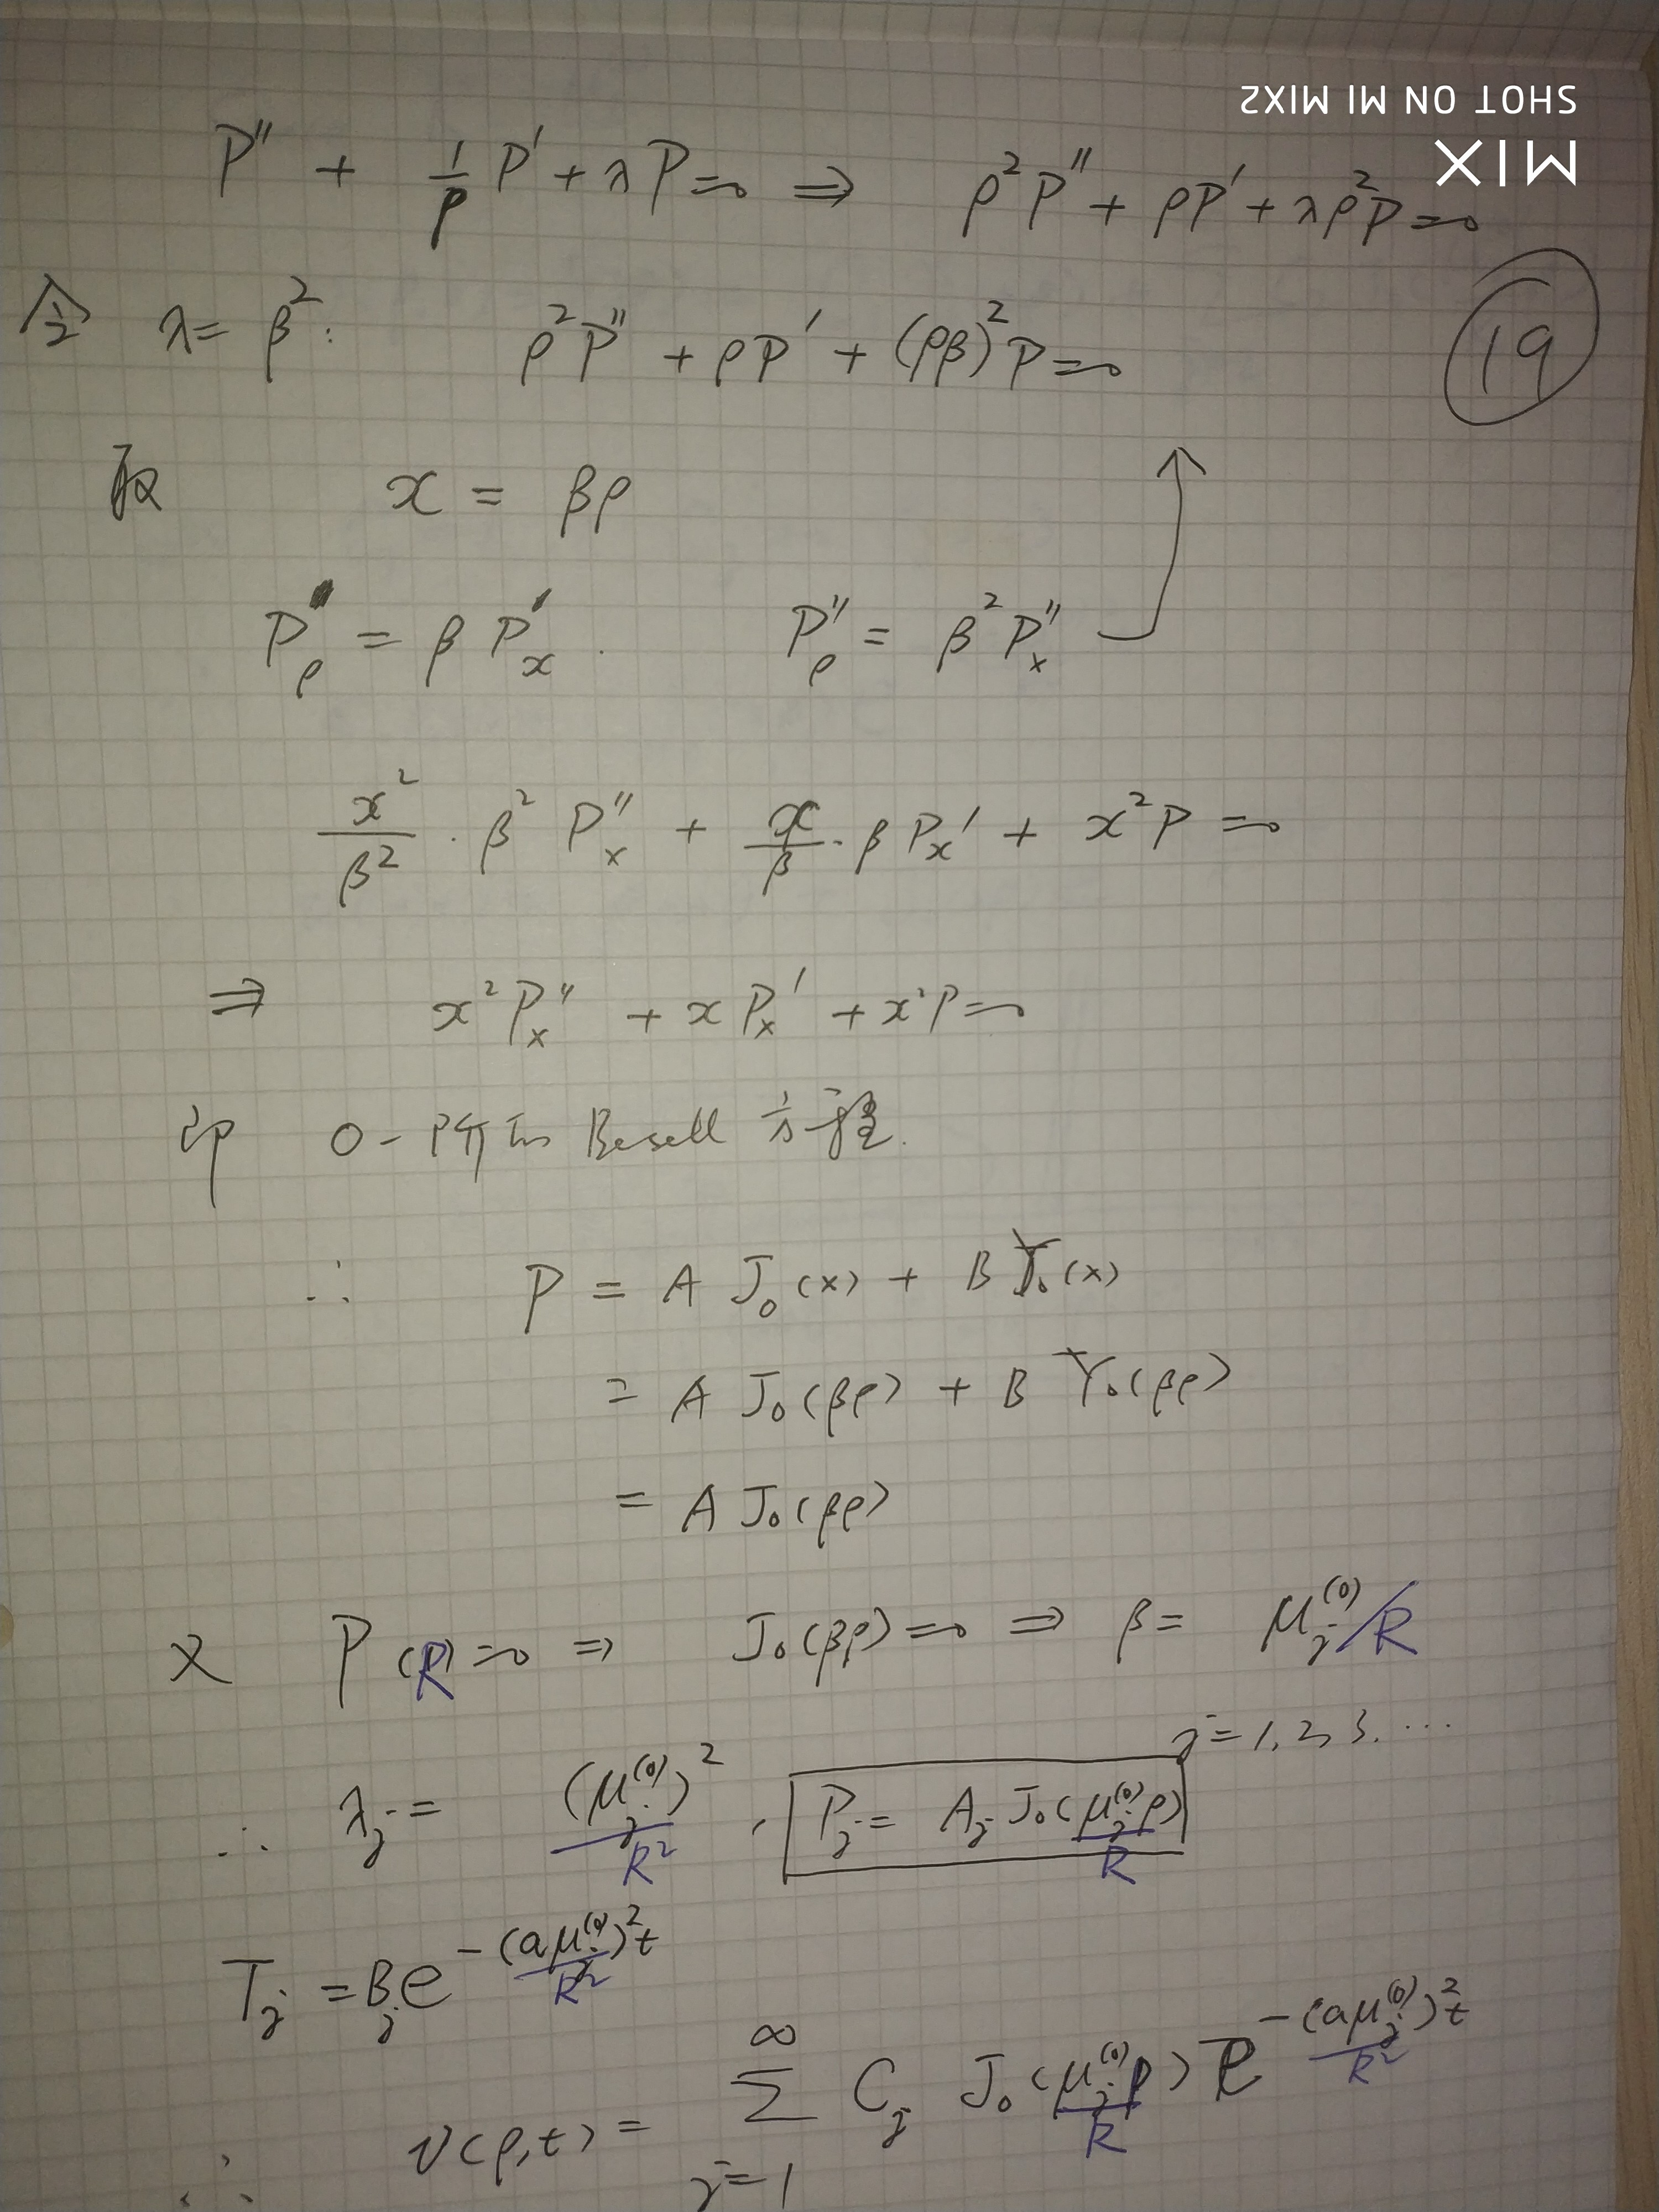 SHOT ON MI MIX2
MIX
P'' + 1/ρ P' + λP = 0 ⇒ ρ²P'' + ρP' + λρ²P = 0
令 λ = β²: ρ²P'' + ρP' + (ρβ)²P = 0
19
取 x = βρ
P'_ρ = β P'_x . P''_ρ = β² P''_x
x²/β² · β² P''_x + x/β · β P_x' + x²P = 0
⇒ x² P_x'' + x P_x' + x²P = 0
即 0-阶的 Besell 方程.
∴ P = A J₀(x) + B Y₀(x)
= A J₀(βρ) + B Y₀(βρ)
= A J₀(βρ)
又 P(R) = 0 ⇒ J₀(βρ) = 0 ⇒ β = μ_j^(0)/R
j = 1, 2, 3, ...
∴ λ_j = (μ_j^(0))²/R² , P_j = A_j J₀(μ_j^(0)ρ/R)
T_j = B_j e^{-(aμ_j^(0))²t/R²}
∴ v(ρ,t) = ∑_{j=1}^{∞} C_j J₀(μ_j^(0)ρ/R) e^{-(aμ_j^(0))²t/R²}